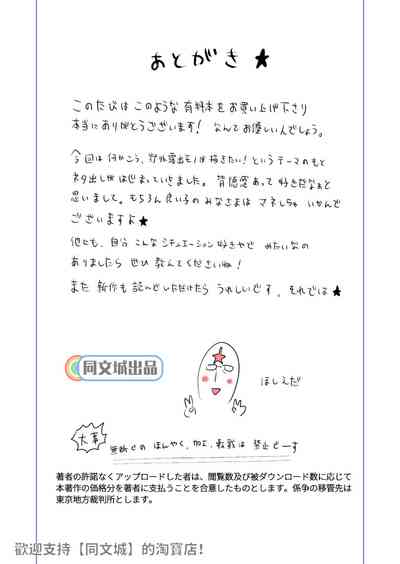 あとがき ★
この たびは このような 有料本を お買い上げ下さり
本当に ありがとうございます! なんてお優しい人でしょう。
今回は 何かこう、野外露出モノが描きたい! というテーマのもと
ネタ出しが はじまっていきました。背徳感あって 好きだなぁと
思いまして。もちろん 良い子の みなさまは マネしちゃ いかんで
ございますよ★
他にも、自分 こんな シチュエーション好きやで みたいなの
ありましたら ぜひ 教えてくださいね!
また 新作も 読んでいただけたら うれしいです。それでは★
同文城出品
ほしえだ
大事
無断での ほんやく、加工、転載は 禁止でーす
著者の許諾なくアップロードした者は、閲覧数及び被ダウンロード数に応じて
本著作の価格分を著者に支払うことを合意したものとします。係争の移管先は
東京地方裁判所とします。
歡迎支持【同文城】的淘寶店!